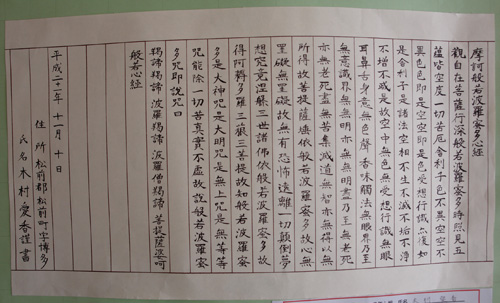 摩訶般若波羅蜜多心経
觀自在菩薩行深般若波羅蜜多時照見五
蘊皆空度一切苦厄舎利子色不異空空不
異色色即是空空即是色受想行識亦復如
是舎利子是諸法空相不生不滅不垢不浄
不増不減是故空中無色無受想行識無眼
耳鼻舌身意無色聲香味觸法無眼界乃至
無意識界無無明亦無無明盡乃至無老死
亦無老死盡無苦集滅道無智亦無得以無
所得故菩提薩埵依般若波羅蜜多故心無
罣礙無罣礙故無有恐怖遠離一切顛倒夢
想究竟涅槃三世諸佛依般若波羅蜜多故
得阿耨多羅三藐三菩提故知般若波羅蜜
多是大神咒是大明咒是無上咒是無等等
咒能除一切苦真實不虚故說般若波羅蜜
多咒即說咒曰
羯諦羯諦 波羅羯諦 波羅僧羯諦 菩提薩婆呵
般若心経
平成二十二年 十一月 十日
住所 松前郡松前町字博多
氏名 木村愛香謹書